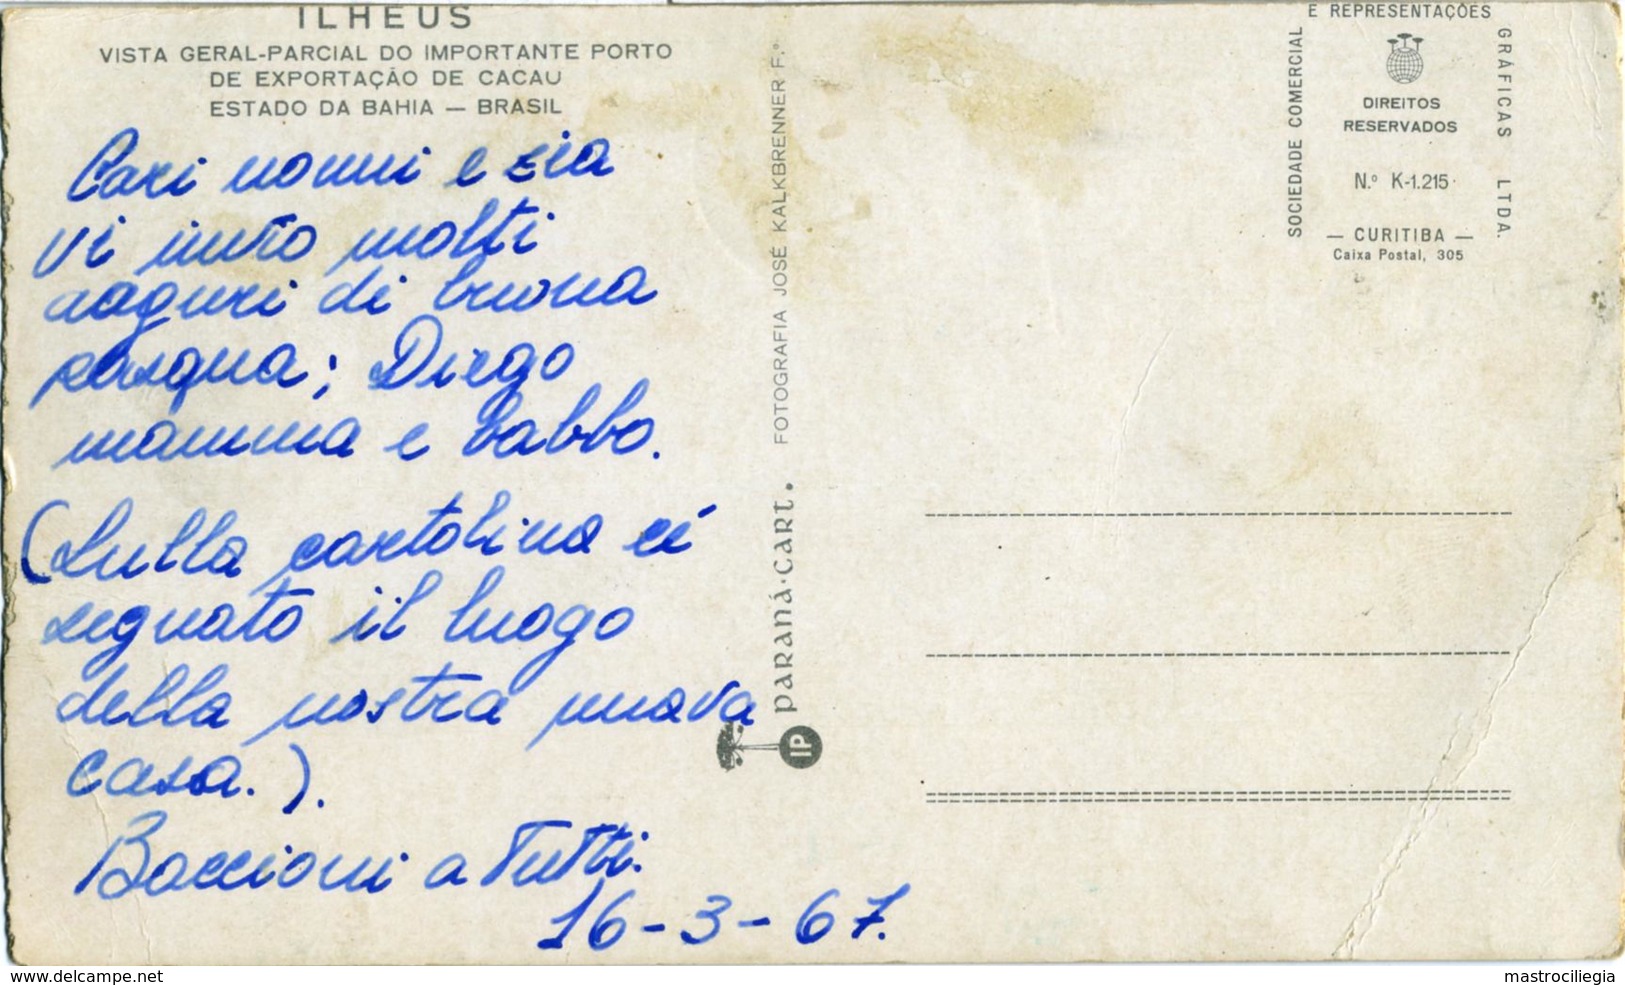 ILHEUS
VISTA GERAL-PARCIAL DO IMPORTANTE PORTO
DE EXPORTAÇÃO DE CACAU
ESTADO DA BAHIA — BRASIL
Cari nonni e zia
vi invio molti
auguri di buona
pasqua; Diego
mamma e babbo.
(Sulla cartolina ci é
segnato il luogo
della nostra nuova
casa.).
Baccioni a Tutti.
16-3-67.
PARANÁ-CART. FOTOGRAFIA JOSÉ KALKBRENNER F.º
IP
SOCIEDADE COMERCIAL
E REPRESENTAÇÕES
GRÁFICAS LTDA.
DIREITOS
RESERVADOS
N.º K-1.215
— CURITIBA —
Caixa Postal, 305
www.delcampe.net
mastrociliegia